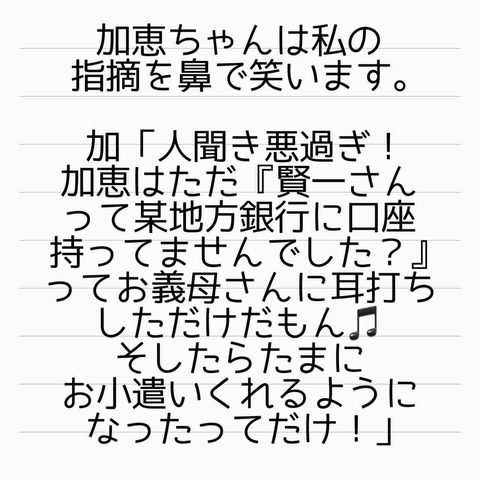 加恵ちゃんは私の
指摘を鼻で笑います。
加「人聞き悪過ぎ！
加恵はただ『賢一さん
って某地方銀行に口座
持ってませんでした？』
ってお義母さんに耳打ち
しただけだもん🎵
そしたらたまに
お小遣いくれるように
なったってだけ！」